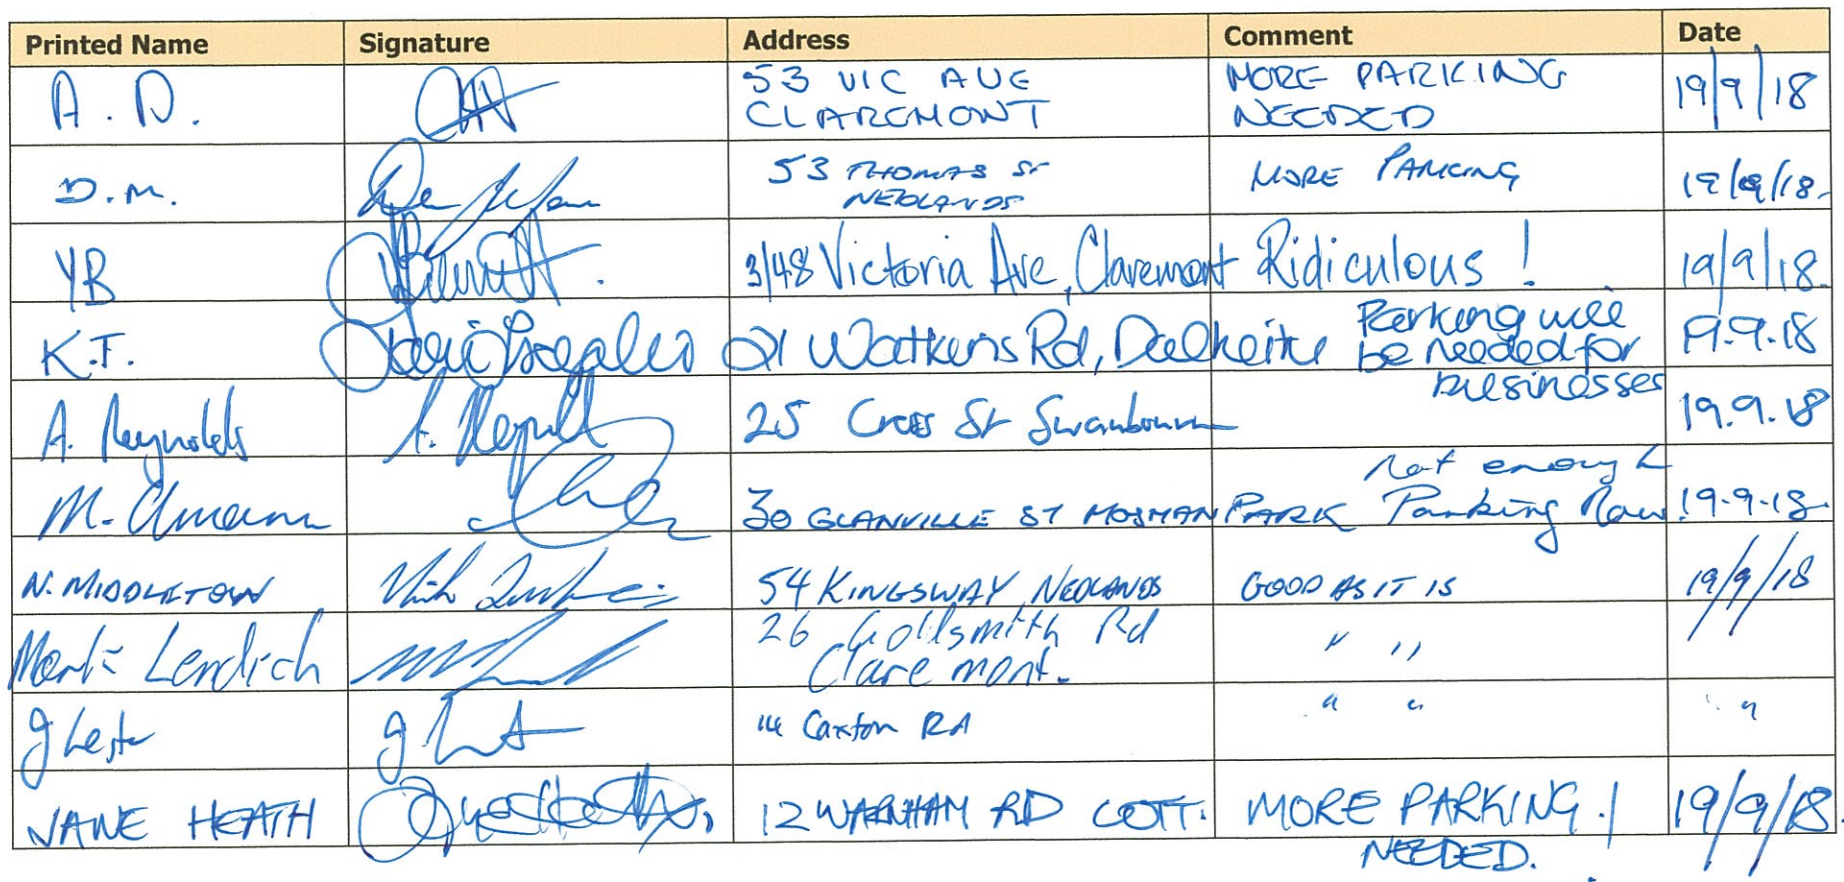 Printed Name Signature Address Comment Date
A. D. 53 VIC AVE CLAREMONT MORE PARKING NEEDED 19/9/18
D.M. 53 THOMAS ST NEDLANDS MORE PARKING 19/9/18.
YB 3/48 Victoria Ave, Claremont Ridiculous! 19/9/18.
K.T. 21 Watkins Rd, Dalkeith Parking will be needed for businesses 19.9.18
A. Reynolds A. Reynolds 25 Cross St Swanbourne 19.9.18
M. 30 GLANVILLE ST MOSMAN PARK Not enough Parking Now! 19-9-18.
N. MIDDLETON 54 KINGSWAY, NEDLANDS GOOD AS IT IS 19/9/18
Mark Lendich 26 Goldsmith Rd Claremont. " "
J Lester 14 Caxton Rd " " " "
JANE HEATH 12 WARNHAM RD COTT. MORE PARKING NEEDED.! 19/9/18